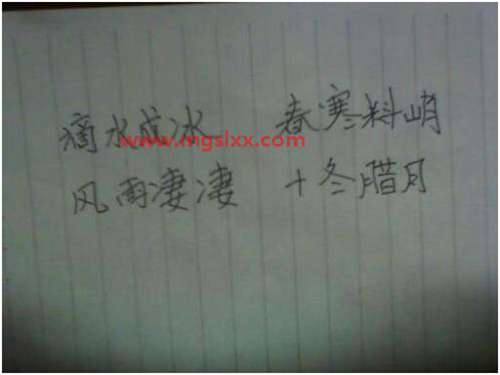 滴水成冰 春寒料峭
www.mgslxx.com
风雨凄凄 十冬腊月